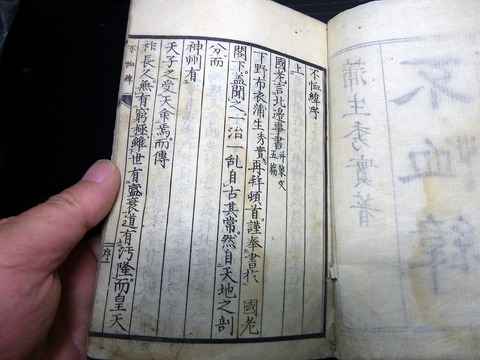 不恤緯
蒲生秀實著
不恤緯序
上
國老言北邊事書 并策文五篇
下野布衣蒲生秀實再拜頓首謹奉書於 國老
閣下。蓋聞之。一治一乱自古其常。然自天地之剖
分而
神州有
天子之受天焉而傳
祚長久無有窮極雖世有盛衰道有汚隆而皇天
不恤緯 序